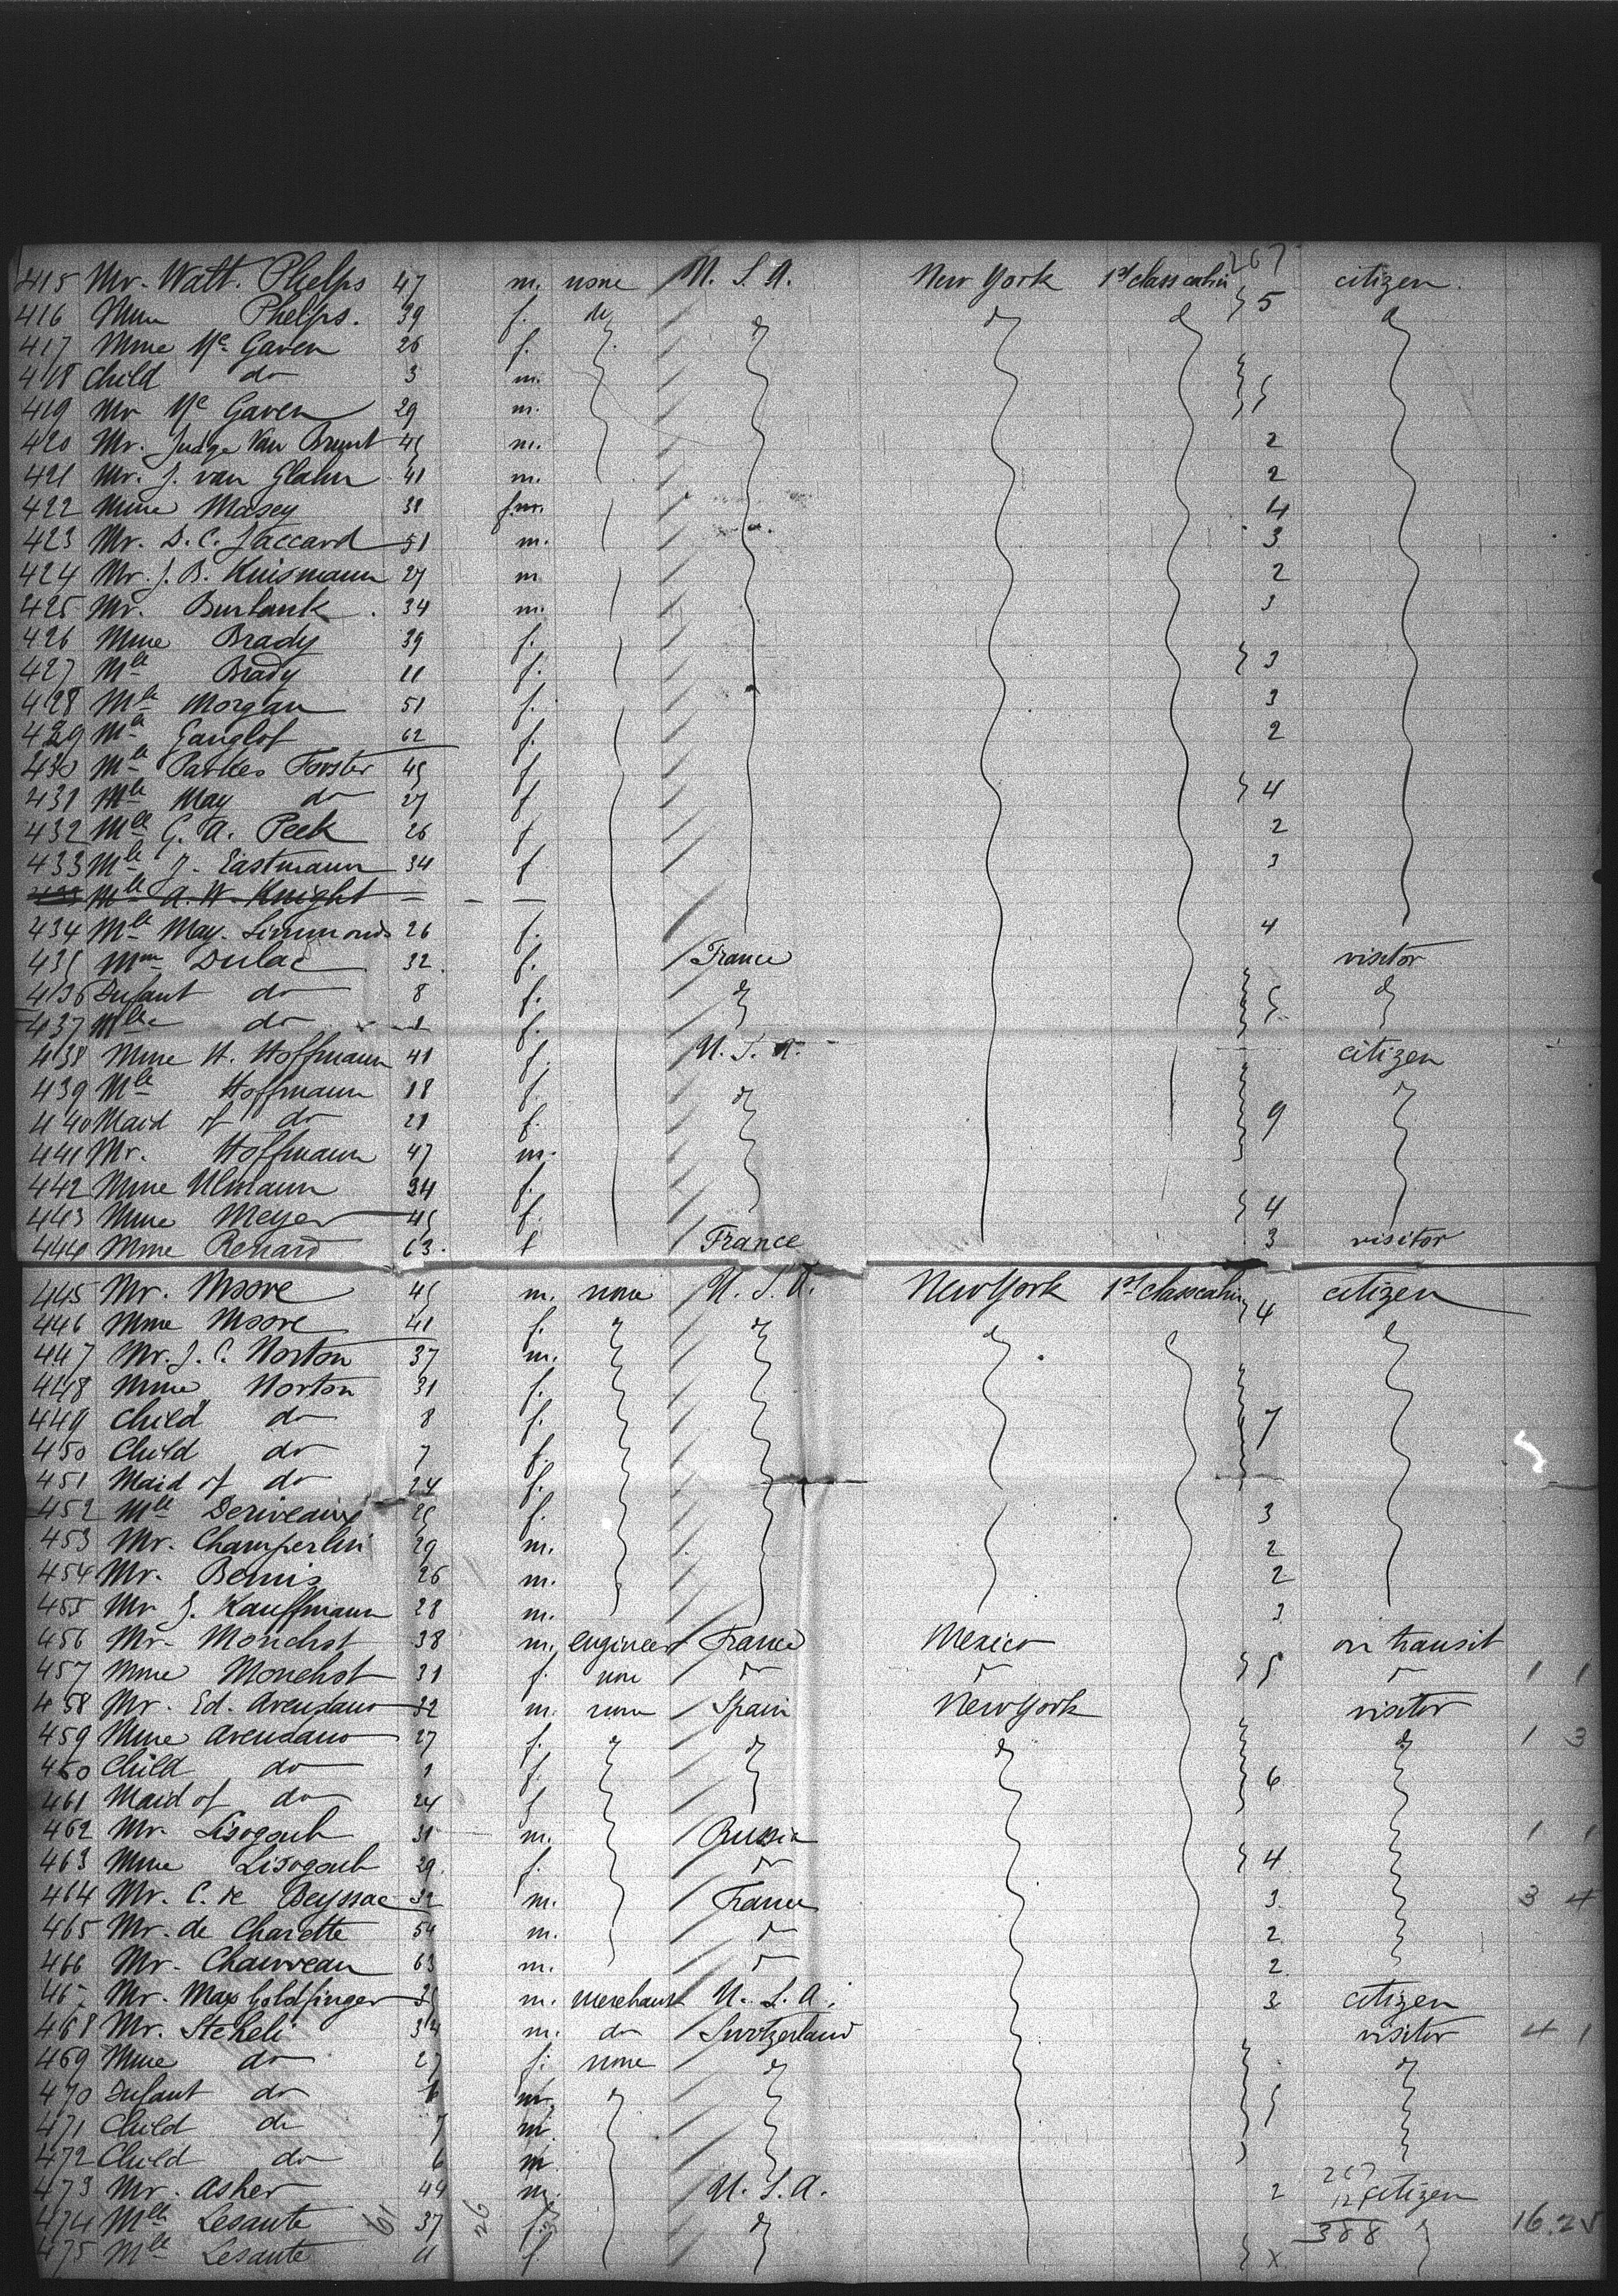 267
415 Mr. Watt. Phelps 47 m. none U. S. A. New York 1st class cabin citizen.
416 Mme Phelps. 39 f. do 5
417 Mme Mc Gaven 26 f.
418 Child do 3 m. 5
419 Mr Mc Gaven 29 m.
420 Mr. Judge Van Brunt 45 m. 2
421 Mr. J. van Glahn 41 m. 2
422 Mme Masey 38 4
423 Mr. D. C. Jaccard 51 m. 3
424 Mr. J. B. Kuismann 27 m 2
425 Mr. Burbank 34 m. 3
426 Mme Brady 39 f.
427 Mlle Brady 11 f. 3
428 Mlle Morgan 51 f. 3
429 Mlle Ganglof 62 f. 2
430 Mlle Parkes Forster 45 f
431 Mlle May do 27 f 4
432 Mlle G. A. Peek 26 f 2
433 Mlle J. Eastmann 34 f 3
Mlle A. W. Knight — — —
434 Mlle May. Simmonds 26 f. 4
435 Mme Dulac 32. f. France visitor
436 Infant do 8 f. 5
437 Mlle do f.
438 Mme H. Hoffmann 41 f. U. S. A. citizen
439 Mlle Hoffmann 18 f.
440 Maid of do 21 f. 9
441 Mr. Hoffmann 47 m.
442 Mme Ulmann 34 f.
443 Mme Meyer 45 f. 4
444 Mme Renard 63. f France 3 visitor
445 Mr. Moore 45 m. none U. S. A. New York 1st class cabin citizen
446 Mme Moore 41 f. 4
447 Mr. J. C. Norton 37 m.
448 Mme Norton 31 f.
449 Child do 8 f. 7
450 Child do 7 f.
451 Maid of do 24 f.
452 Mlle Deriveaux 25 f. 3
453 Mr. Champerlin 29 m. 2
454 Mr. Bemis 26 m. 2
455 Mr J. Kauffmann 28 m. 3
456 Mr. Monchot 38 m. engineer France Mexico on transit
457 Mme Monchot 31 f. none do do 5 do 1 1
458 Mr. Ed. Avendano 32 m. none Spain New York visitor
459 Mme Avendano 27 f. 1 3
460 Child do 1 f. 6
461 Maid of do 24 f
462 Mr. Lisogoub 31 m. Russia 1 1
463 Mme Lisogoub 29. f. do 4
464 Mr. C. de Beyssac 32 m. France 3. 3 4
465 Mr. de Charette 54 m. do 2
466 Mr. Chauveau 63 m. do 2.
467 Mr. Max Goldfinger 35 m. merchant U. S. A. 3 citizen
468 Mr. Steheli 34 m. do Switzerland visitor 4 1
469 Mme do 27 f. none
470 Infant do m. 5
471 Child do 7 m.
472 Child do 6 m
473 Mr. Asher 44 m. U. S. A. 2 267 121 citizen
474 Mlle Lesaute 37 f. 388 16.25
475 Mlle Lesaute 11 f. X
61 26